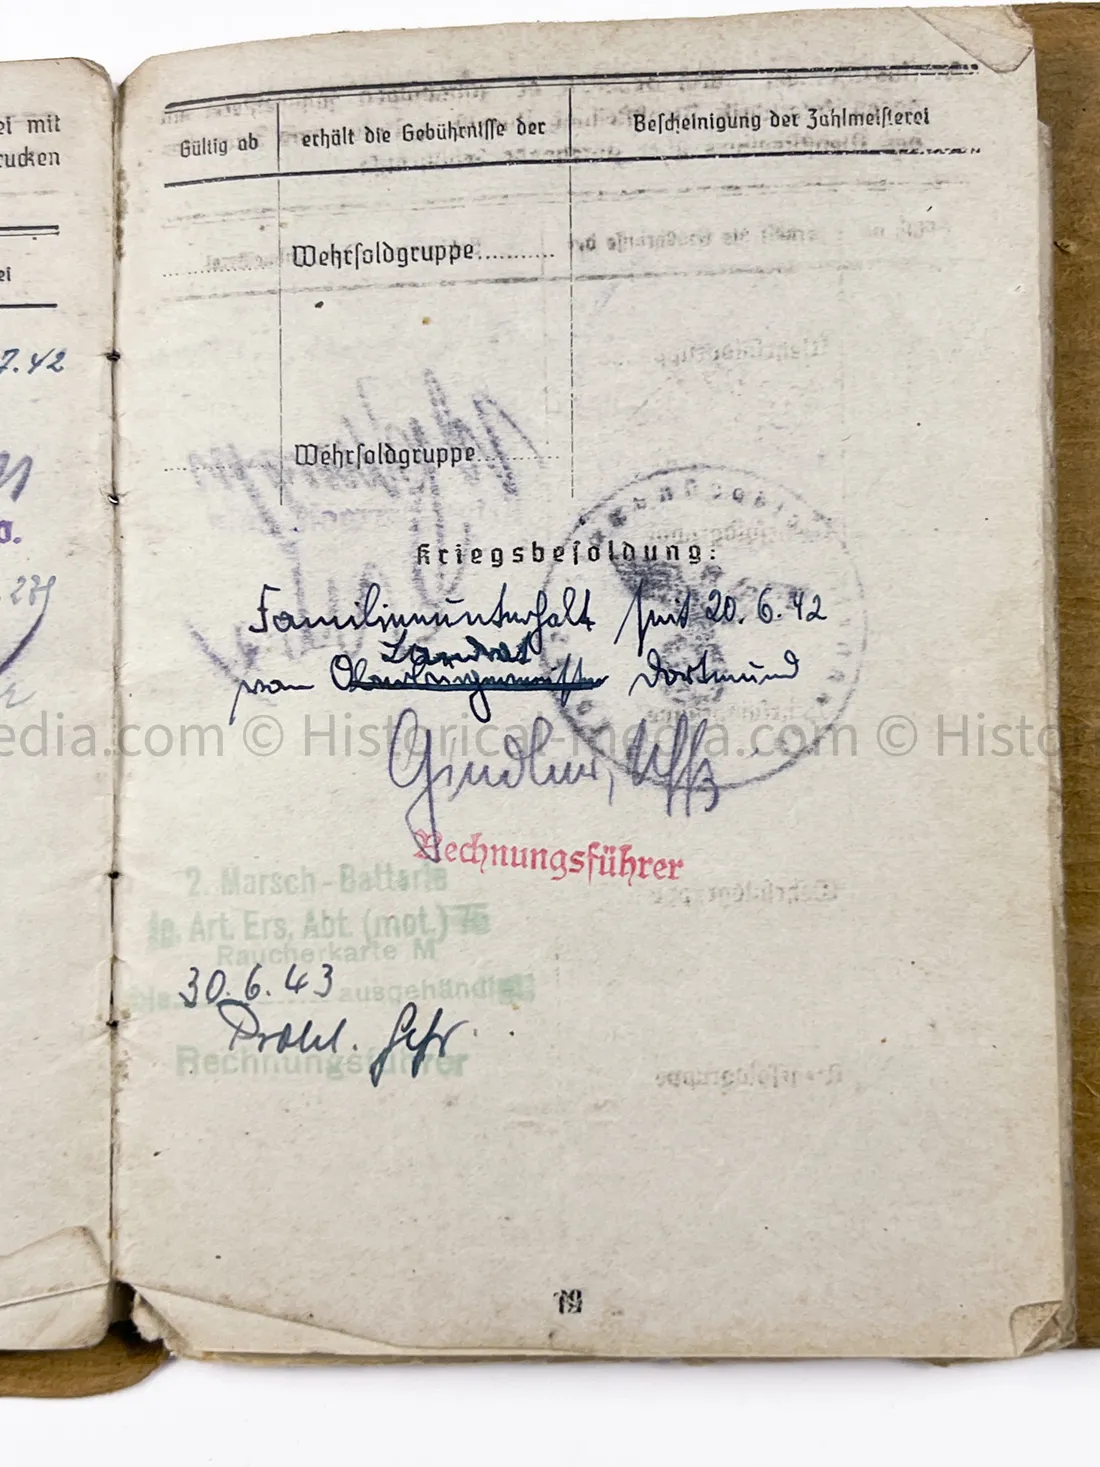 ei mit
rucken
ei
7.42
Gültig ab
erhält die Gebührnisse der
Bescheinigung der Zahlmeisterei
Wehrsoldgruppe
Wehrsoldgruppe
Kriegsbesoldung:
Familienunterhalt seit 20.6.42
Landrat
vom Oberbürgermeister Dortmund
Uffz
Rechnungsführer
2. Marsch-Batterie
Art. Ers. Abt. (mot.)
Raucherkarte M
30.6.43
ausgehändigt
Gefr.
Rechnungsführer
19
edia.com © Historical-media.com © Histor